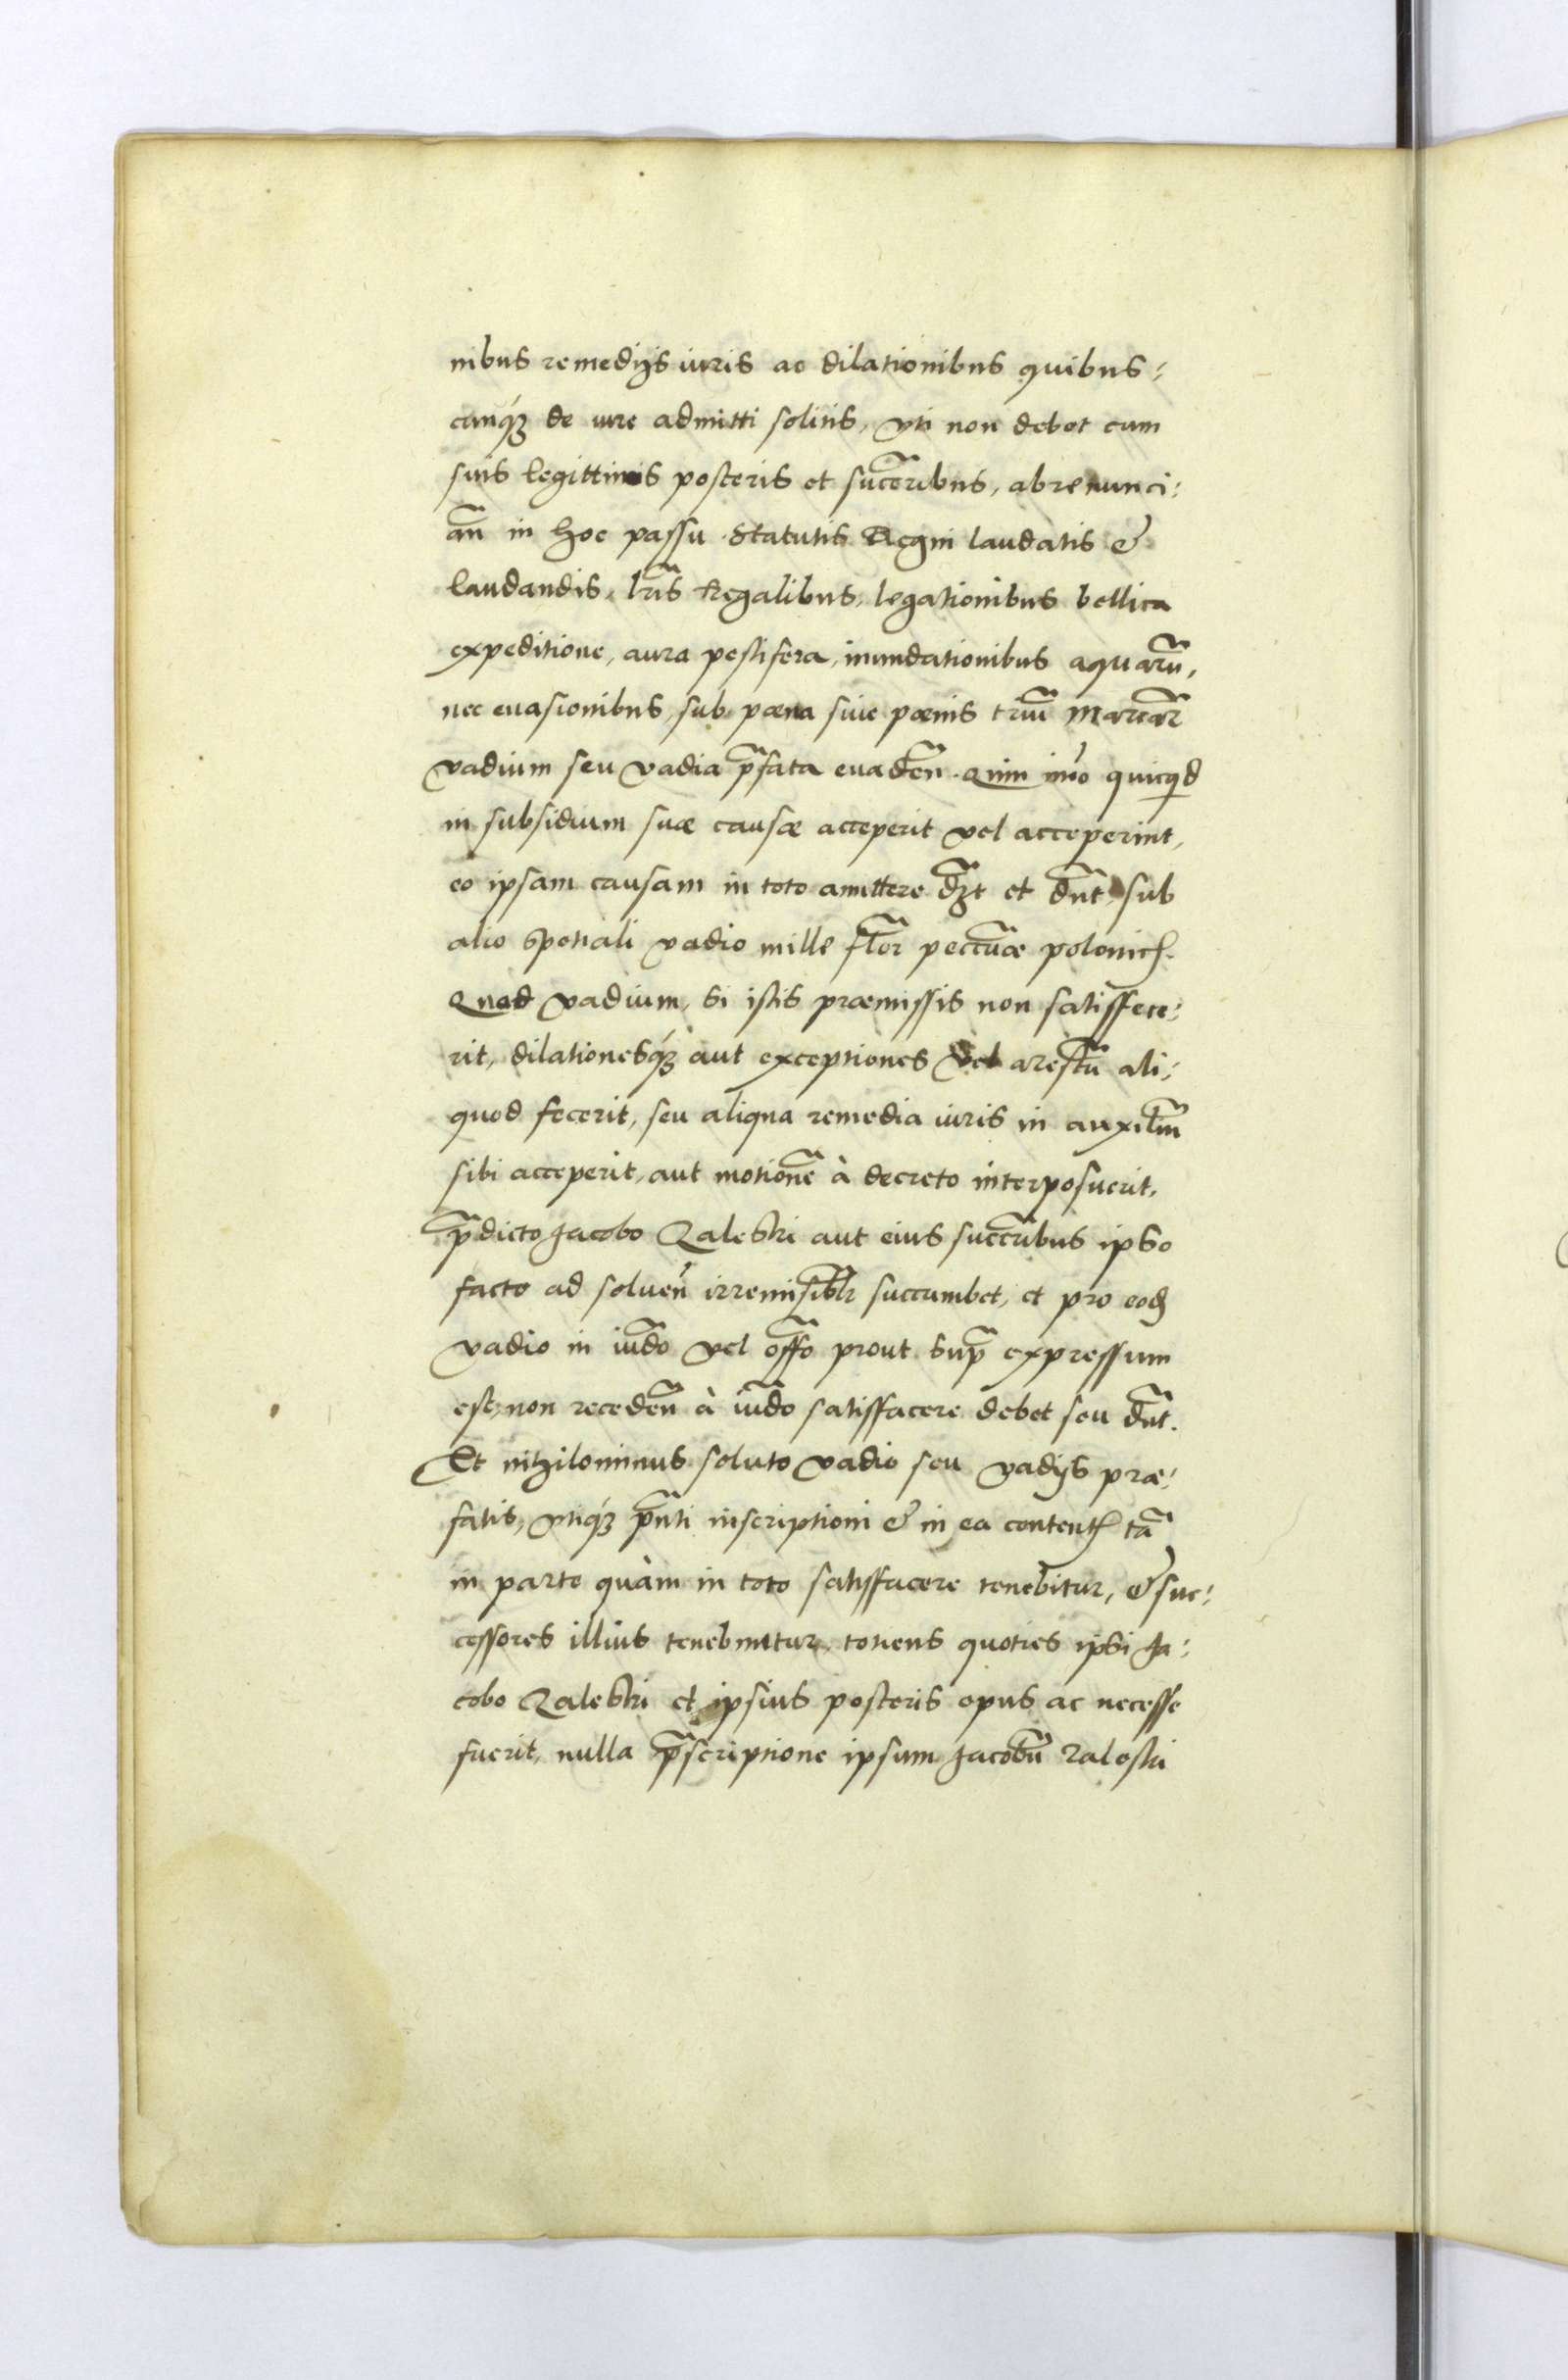 nibus remedijs iuris ac dilationibus quibus:
cunq́ꝫ de iure admitti solitis, vti non debet cum
suis legittimis posteris et succ̃oribus, abrenunci:
añ in hoc passu statutis Regni laudatis &
laudandis, lr̃is Regalibus, legationibus bellica
expeditione, aura pestifera, inundationibus aquarũ,
nec euasionibus, sub pœna siue pœnis triũ Marcar̃
vadium seu vadia p̃fata euadeñ. Quin im̃o quicq̨d
in subsidium suæ causæ acceperit vel acceperint,
eo ipsam causam in toto amittere dꝫ̃t et dñt, sub
alio spetiali vadio mille flõr peccũæ polonicꝭ.
Quod vadium, si istis præmissis non satisfece:
rit, dilationesq́ꝫ aut exceptiones vel arestũ ali:
quod fecerit, seu aliqua remedia iuris in auxiliũ
sibi acceperit, aut motionẽ à decreto interposuerit,
p̃dicto Jacobo Zaleski aut eius succ̃ribus ipso
facto ad solueñ irremisibl̃r succumbet, et pro eodꝫ
vadio in iud̃o vel off̃o prout sup̃ expressum
est, non recedeñ à iud̃o satisfacere debet seu dñt.
Et nihilominus soluto vadio seu vadijs præ:
fatis, vtiq́ꝫ p̃nti inscriptioni & in ea contentꝭ tã
in parte quàm in toto satisfacere tenebitur, & suc:
cessores illius tenebuntur, totiens quoties ipsi Ja:
cobo Zaleski et ipsius posteris opus ac necesse
fuerit, nulla p̃scriptione ipsum Jacobũ Zaleski